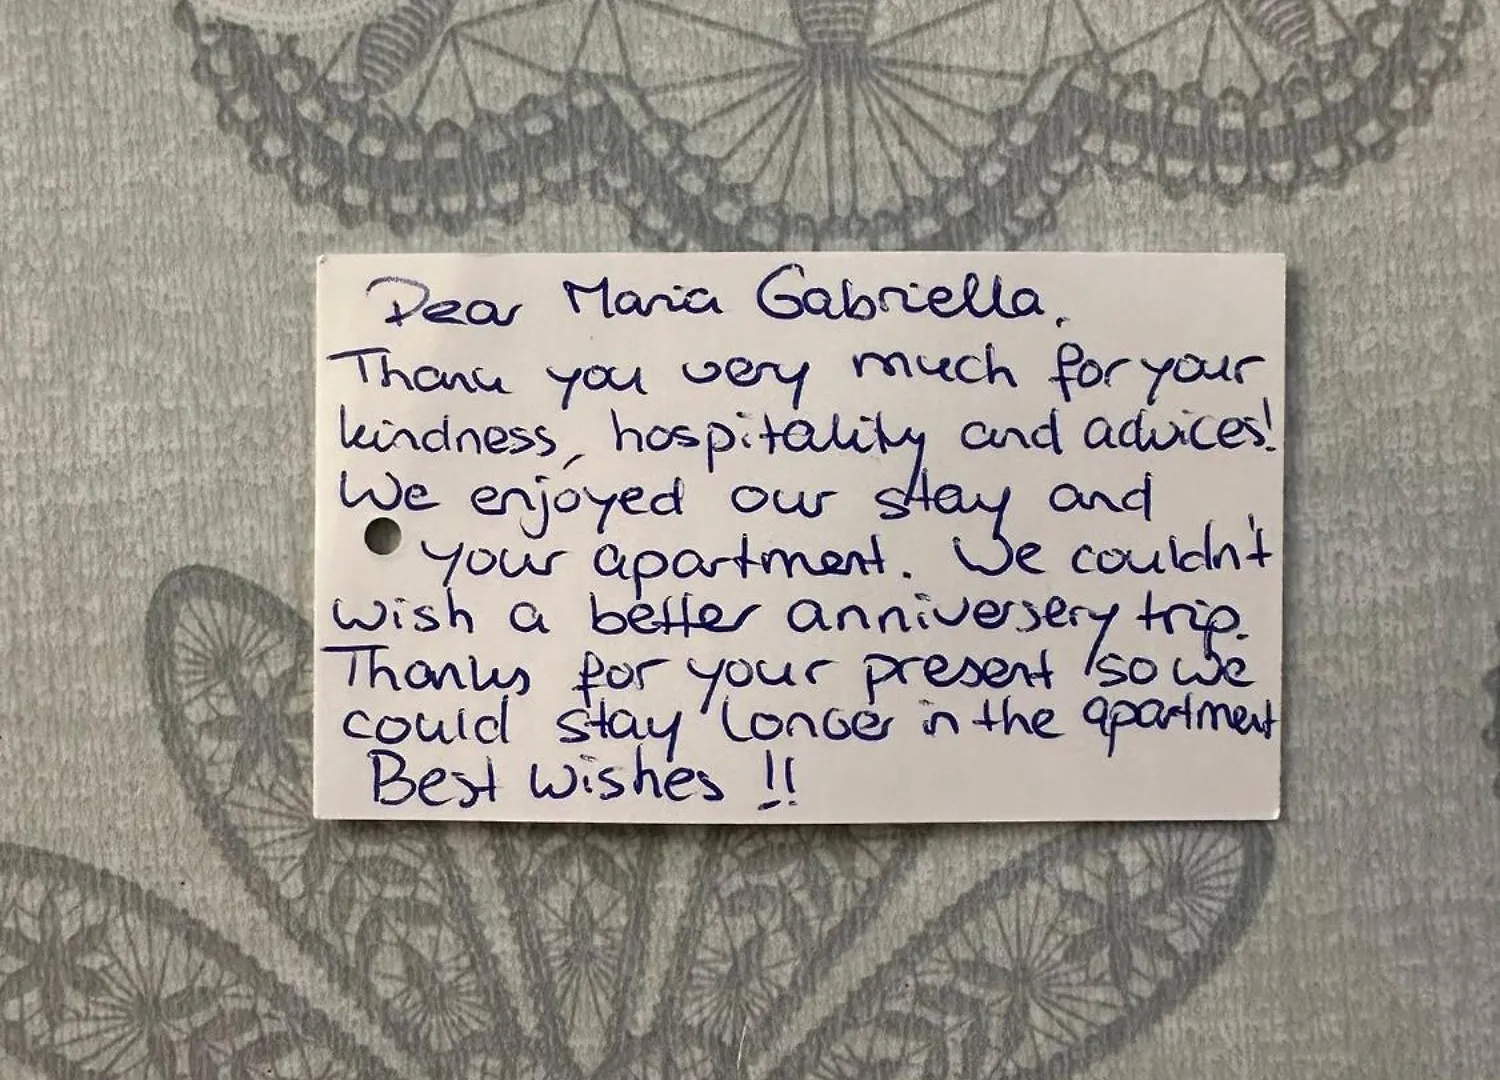 Dear Maria Gabriella,
Thank you very much for your
kindness, hospitality and advices!
We enjoyed our stay and
your apartment. We couldn't
wish a better anniversery trip.
Thanks for your present so we
could stay longer in the apartment
Best wishes !!